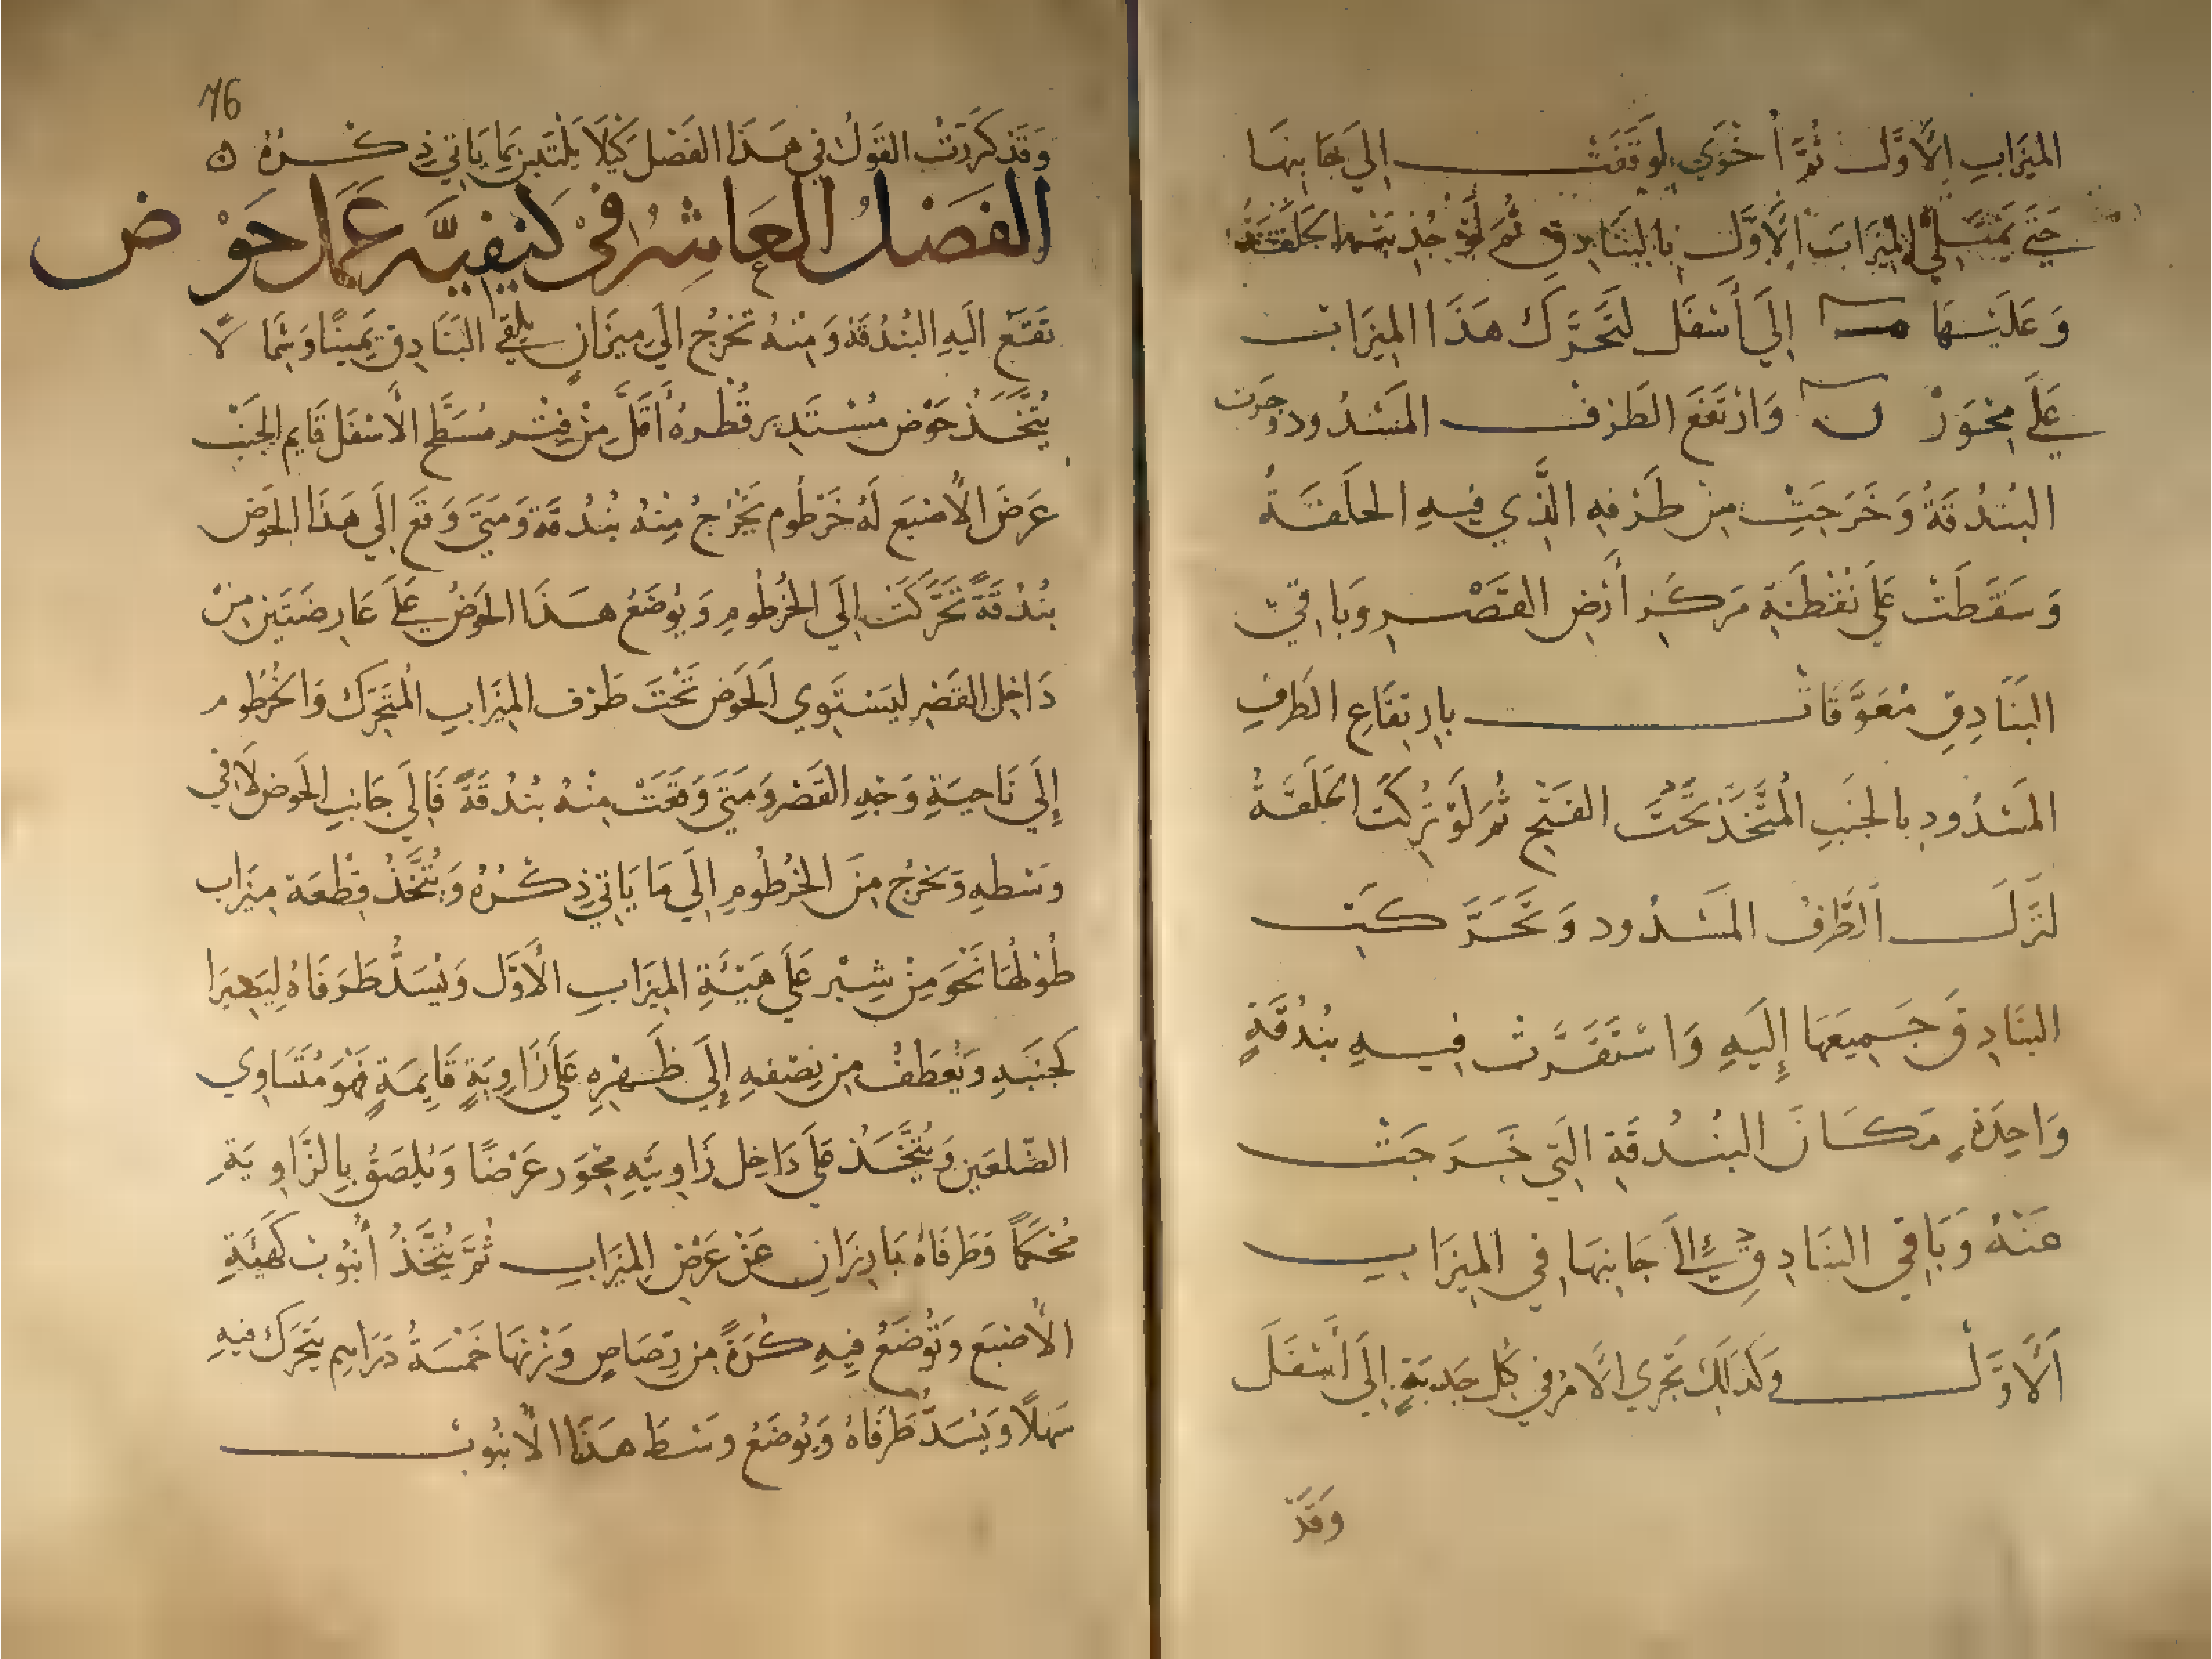 الميزاب الأول ثم أخرى لوقفت إلى جانبها
حتى يمتلي الميزاب الأول بالبنادق ثم لو جذبت الحلقة
وعليها مـ إلى أسفل لتحرك هذا الميزاب
على محور ں وارتفع الطرف المشدود وجرت
البندقة وخرجت من طرفه الذي فيه الحلقة
وسقطت على نقطة مركز أرض القصر وباقي
البنادق معوقات بارتفاع الطرف
المشدود بالجنب المتخذ تحت الفتح ثم لو تركت الحلقة
لنزل الطرف المشدود وتحركت
البنادق جميعها إليه واستقرت فيه بندقة
واحدة مكان البندقة التي خرجت
عنه وباقي البنادق إلى جانبها في الميزاب
الأول وكذلك تجري الأمر في كل جذبة إلى أسفل
وقد
76
وقد كررت القول في هذا الفصل كيلا يلتبس بما ياتي ذكره ن
الفصل العاشر في كيفية عمل حوض
تقع اليه البندقة ومنه تخرج الى ميزان يلقي البنادق يمينا وشمالا
يتخذ حوض مستدير قطره أقل من فتر مسطح الاسفل قايم الجنب
عرض الاصبع له خرطوم يخرج منه بندقة ومتى وقع إلى هذا الحوض
بندقة تحركت إلى الخرطوم ويوضع هذا الحوض على عارضتين من
داخل القصر ليستوي الحوض تحت طرف الميزاب المتحرك والخرطوم
إلى ناحية وجه القصر ومتى وقعت منه بندقة فالى جانب الحوض لا في
وسطه وتخرج من الخرطوم إلى ما ياتي ذكره ويتخذ قطعة ميزاب
طولها نحو من شبر على هيئة الميزاب الأول ويسد طرفاه ليصيرا
كجنبه ويعطف من نصفه إلى ظهره على زاوية قايمة فهو متساوي
الضلعين ويتخذ على داخل زاويته محور عرضا ويلصق بالزاوية
محكما وطرفاه بارزان عن عرض الميزاب ثم يتخذ أنبوب كهيئة
الأصبع وتوضع فيه كرة من رصاص وزنها خمسة دراهم يتحرك فيه
سهلا ويسد طرفاه ويوضع وسط هذا الأنبوب